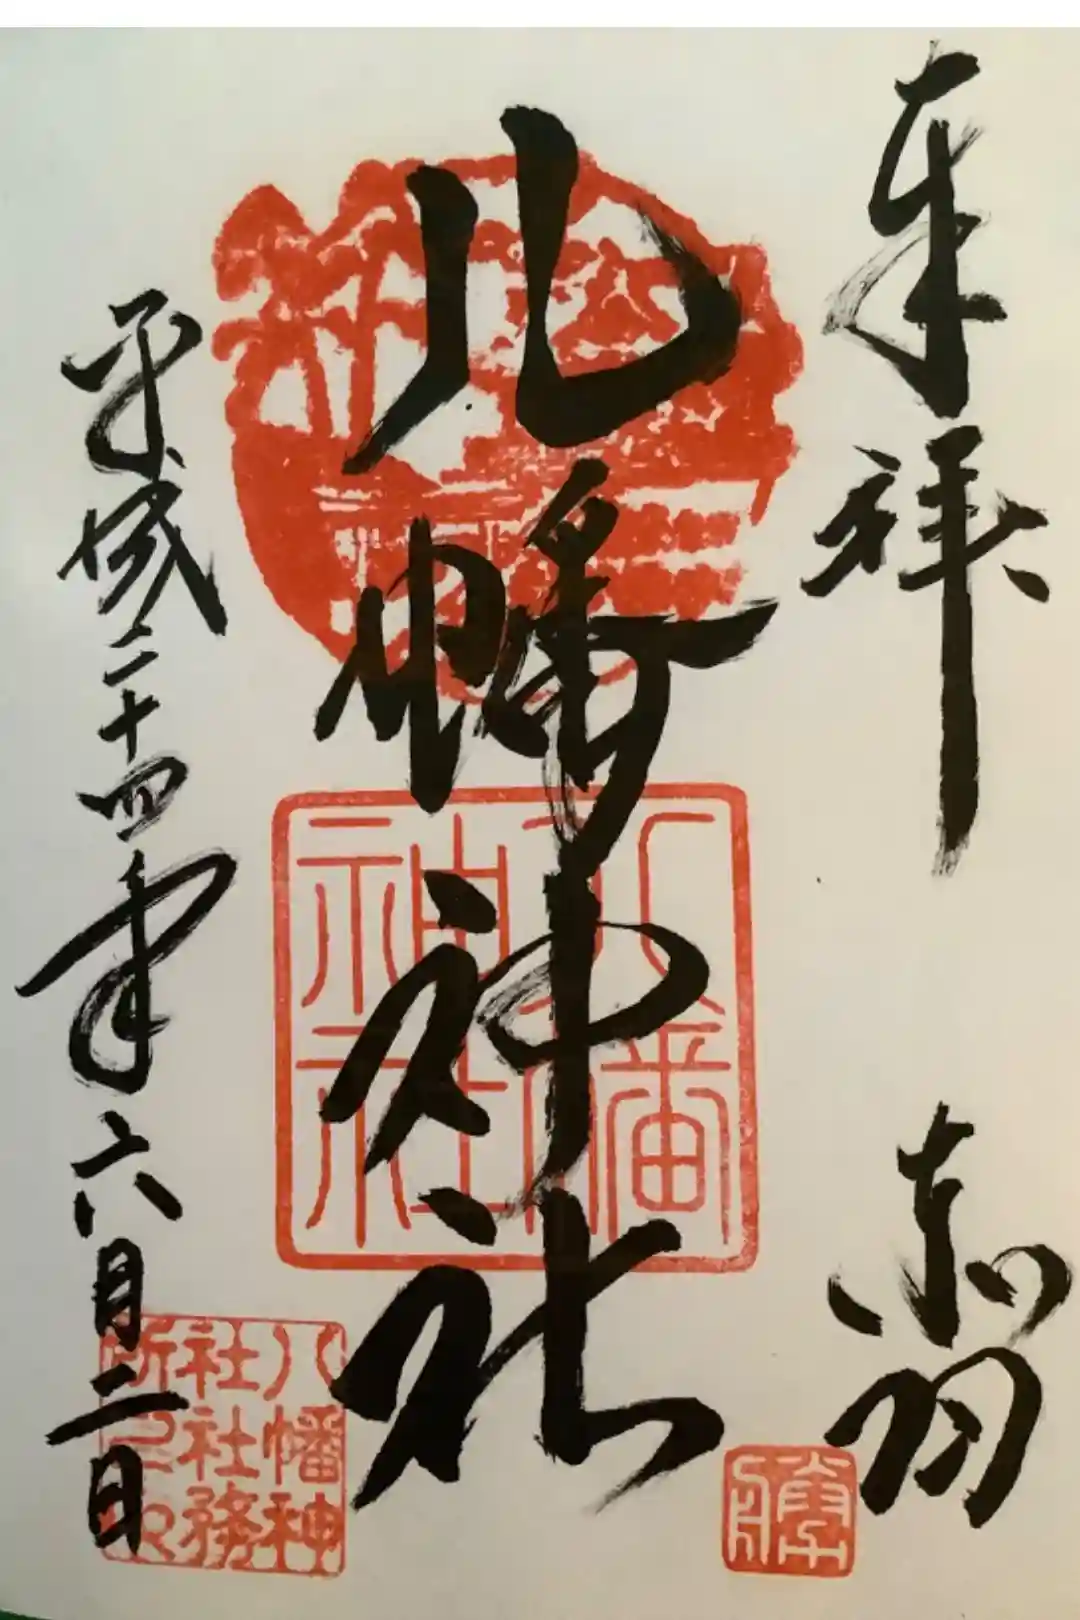 奉拝
赤羽
八幡神社
八幡
神社
平成二十四年六月二日
八幡神
社社務
所之印